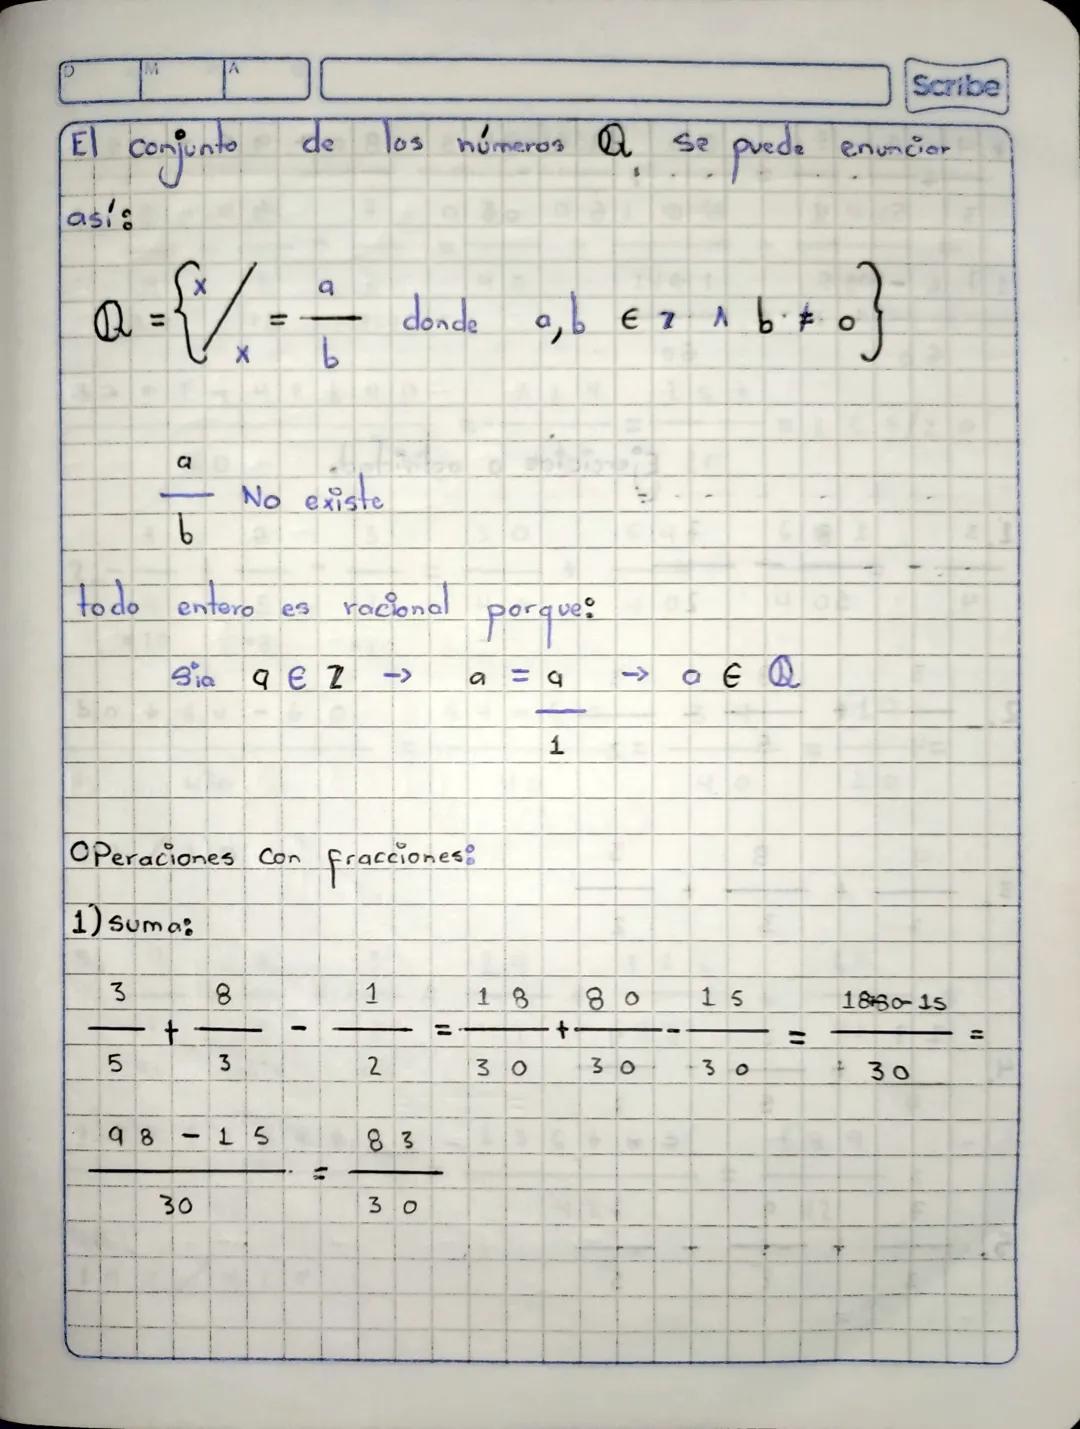 D M A Scribe
El conjunto de los números ℚ se puede enunciar
así:
ℚ = {x/x = a/b donde a,b ∈ Z ∧ b ≠ 0}
a/b No existe
todo entero es racional porque:
Sia a ∈ Z → a = a/1 → a ∈ ℚ
Operaciones con fracciones:
1) suma:
3/5 + 8/3 - 1/2 = 18/30 + 80/30 - 15/30 = 18+80-15/30 =
98-15/30 = 83/30